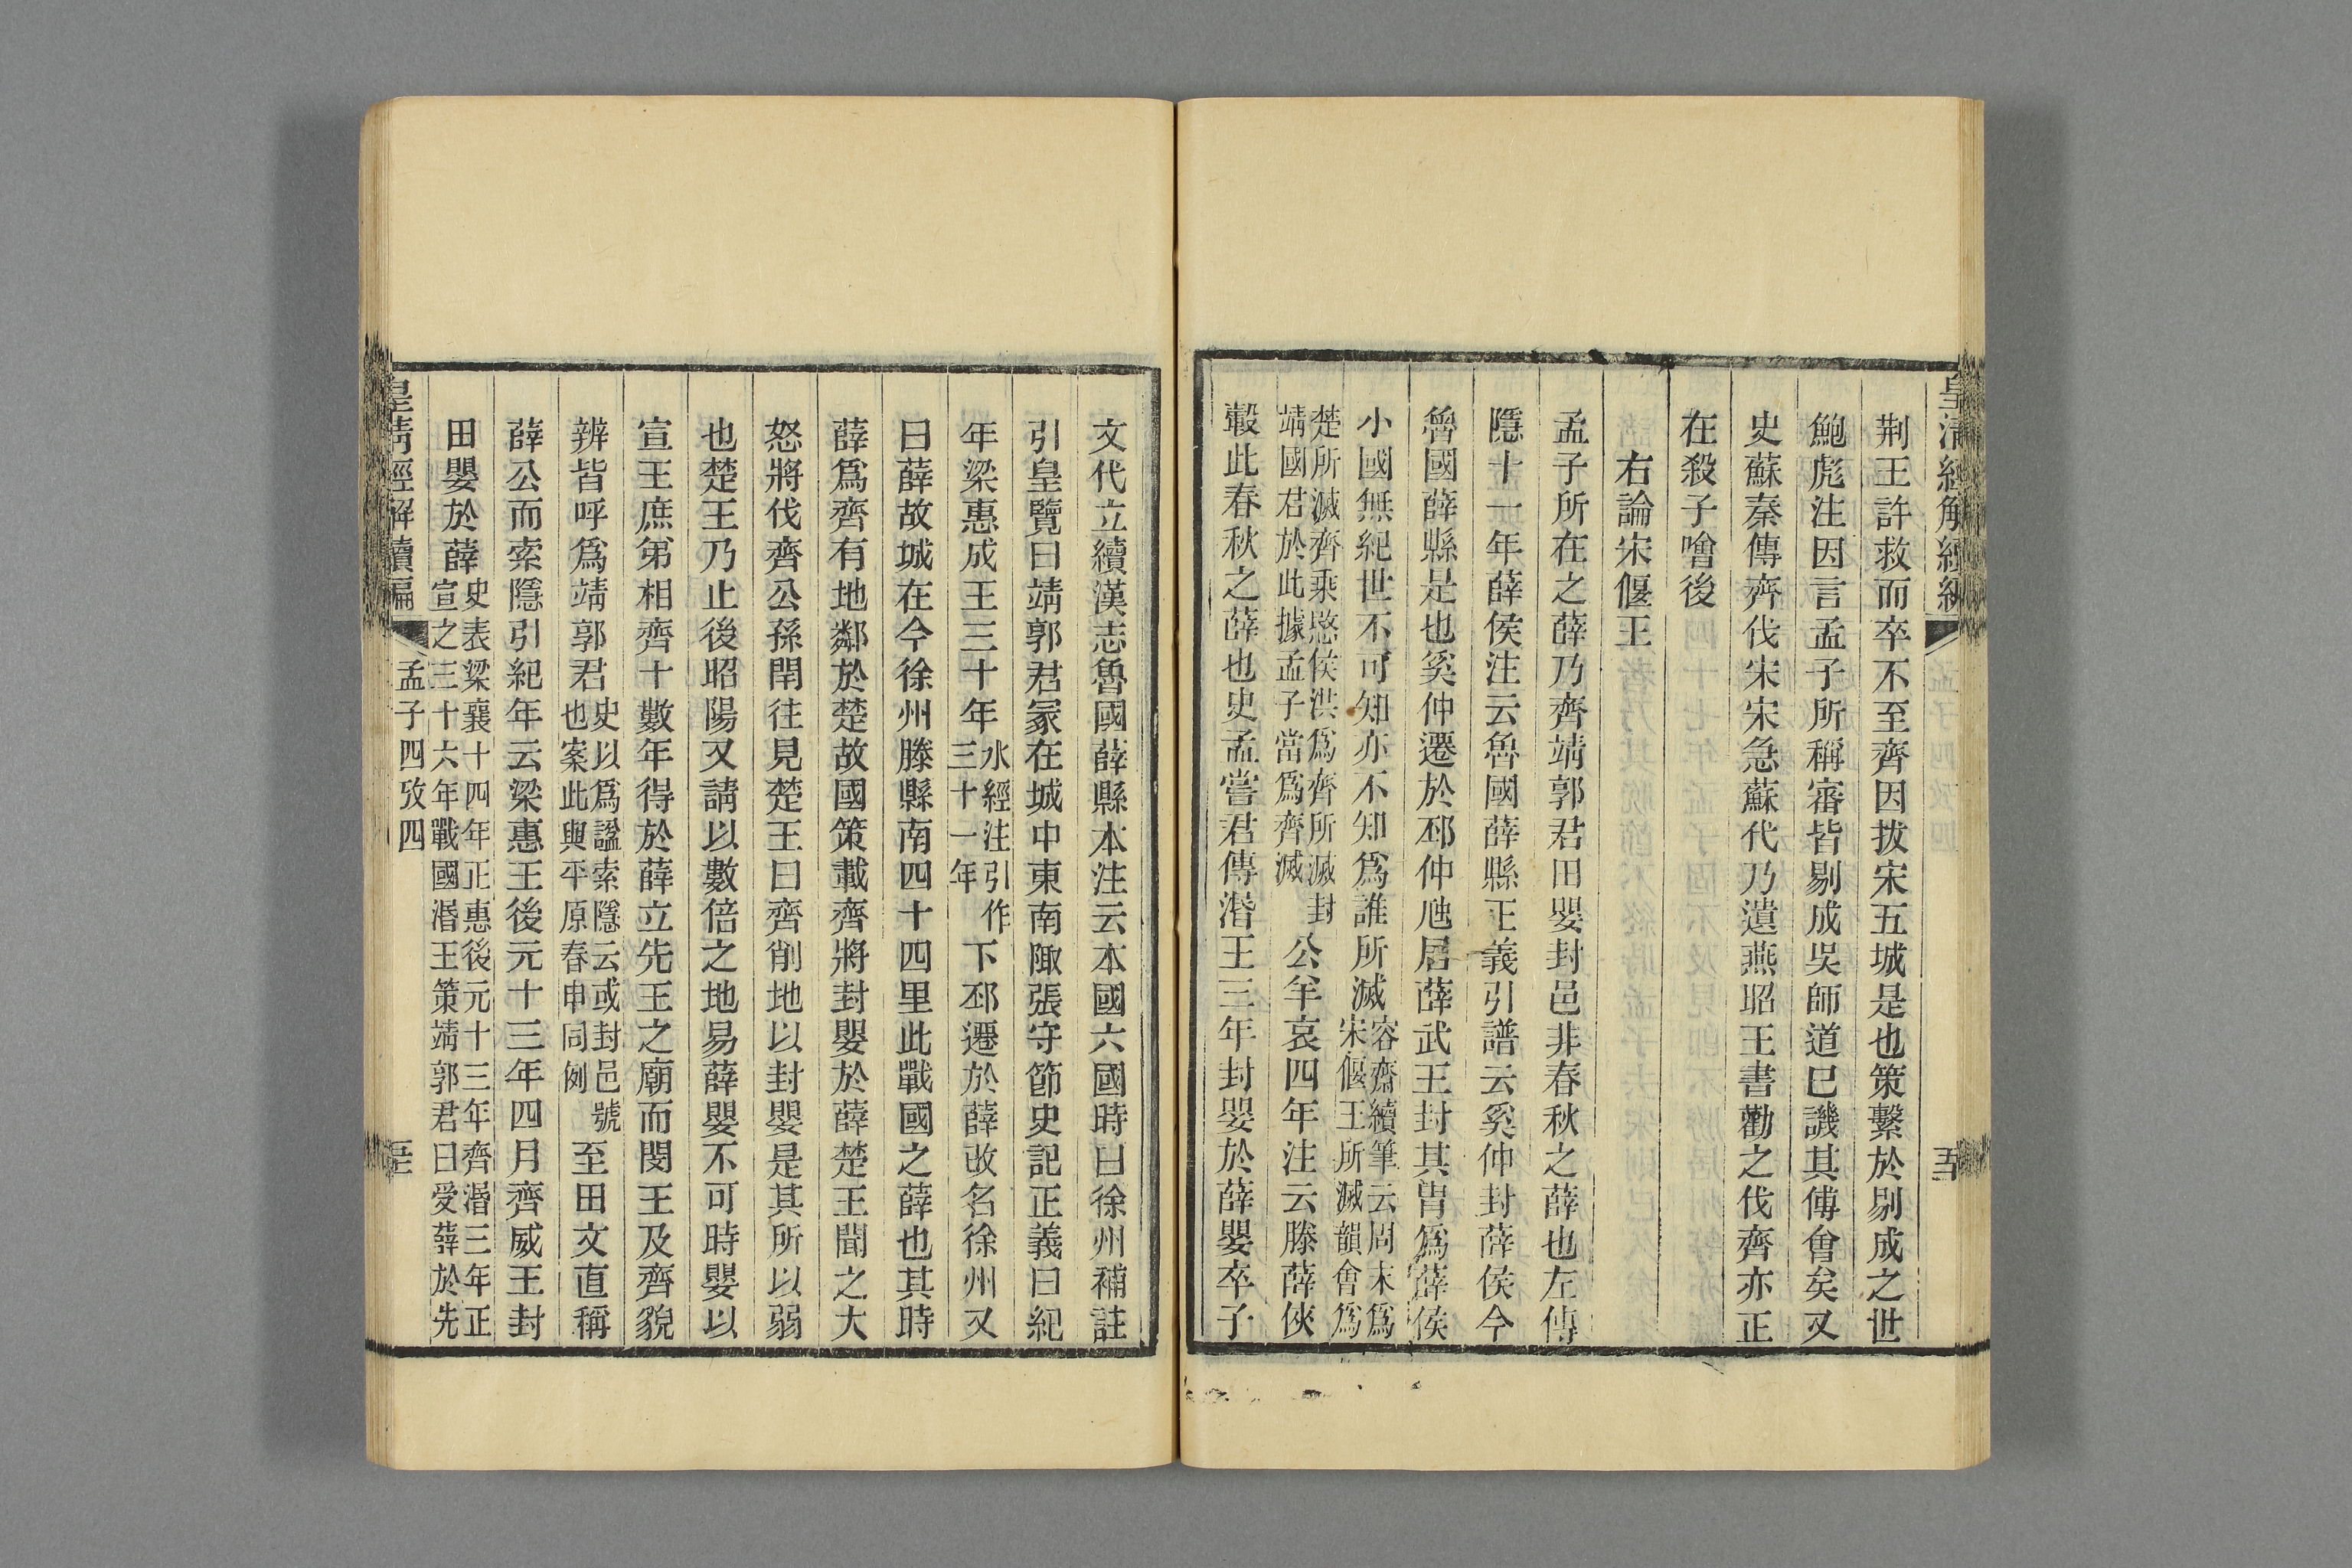 皇清經解續編
荆王許救而卒不至齊因拔宋五城是也策繫於剔成之世
鮑彪注因言孟子所稱審皆剔成吳師道已譏其傅會矣又
史蘇秦傳齊伐宋宋急蘇代乃遺燕昭王書勸之伐齊亦正
在殺子噲後
右論宋偃王
孟子所在之薛乃齊靖郭君田嬰封邑非春秋之薛也左傳
隱十一年薛侯注云魯國薛縣正義引譜云奚仲封薛侯今
魯國薛縣是也奚仲遷於邳仲虺居薛武王封其冑爲薛侯
小國無紀世不可知亦不知爲誰所滅容齋續筆云周末爲宋偃王所滅韻會爲
楚所滅齊乘愍侯洪爲齊所滅封靖國君於此據孟子當爲齊滅公羊哀四年注云滕薛俠
轂此春秋之薛也史孟嘗君傳湣王三年封嬰於薛嬰卒子
文代立續漢志魯國薛縣本注云本國六國時曰徐州補註
引皇覽曰靖郭君冢在城中東南陬張守節史記正義曰紀
年梁惠成王三十年水經注引作三十一年下邳遷於薛改名徐州又
曰薛故城在今徐州滕縣南四十四里此戰國之薛也其時
薛爲齊有地鄰於楚故國策載齊將封嬰於薛楚王聞之大
怒將伐齊公孫閈往見楚王曰齊削地以封嬰是其所以弱
也楚王乃止後昭陽又請以數倍之地易薛嬰不可時嬰以
宣王庶弟相齊十數年得於薛立先王之廟而閔王及齊貌
辨皆呼爲靖郭君史以爲諡索隱云或封邑號也案此與平原春申同例至田文直稱
薛公而索隱引紀年云梁惠王後元十三年四月齊威王封
田嬰於薛史表梁襄十四年正惠後元十三年齊湣三年正宣之三十六年戰國湣王策靖郭君曰受薛於先
皇清經解續編
孟子四攷四